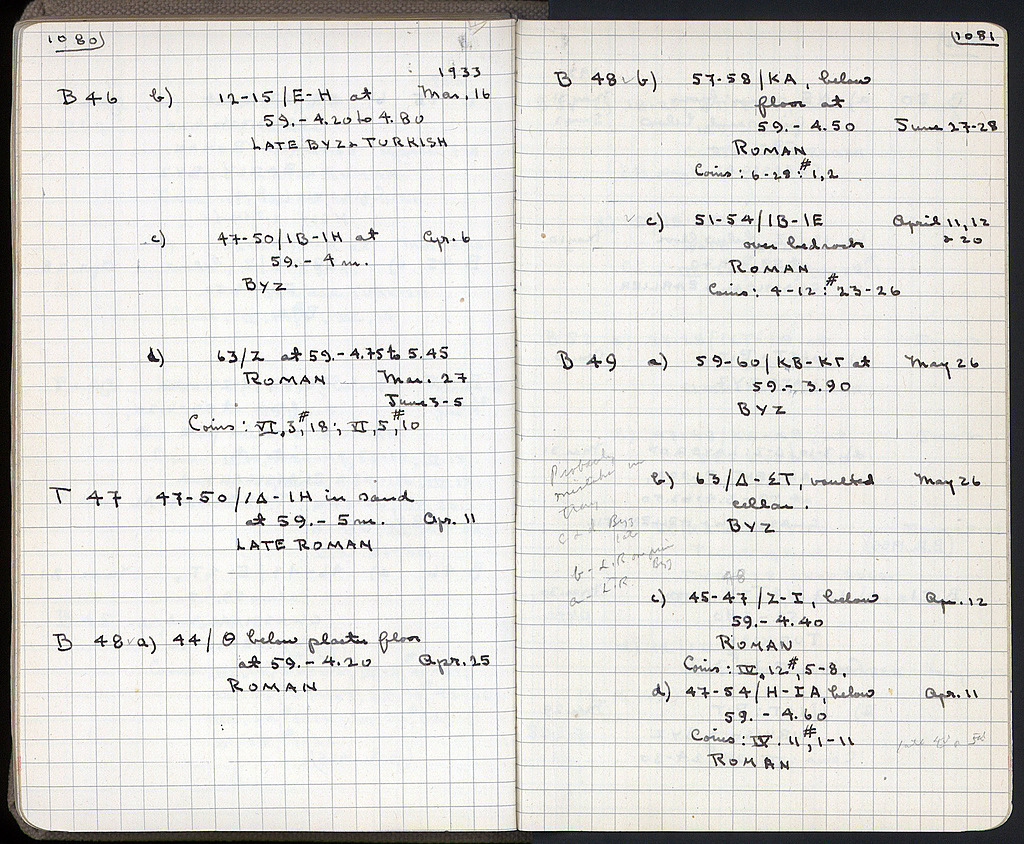 1080
1933
B 46 b) 12-15/E-H at Mar. 16
59.-4.20 to 4.80
LATE BYZ & TURKISH
c) 47-50/IB-IH at Apr. 6
59.- 4 m.
BYZ
d) 63/Z at 59.-4.75 to 5.45
ROMAN Mar. 27
June 3-5
Coins: VI, 3, #18; VI, 5, #10
T 47 47-50/ΙΔ-IH in sand
at 59.- 5 m. Apr. 11
LATE ROMAN
B 48 a) 44/Θ below plaster floor
at 59.-4.20 Apr. 25
ROMAN
1081
B 48 b) 57-58/KA, below
floor at
59.-4.50 June 27-28
ROMAN
Coins: 6-28: #1,2
c) 51-54/IB-IE April 11, 12
over bedrock & 20
ROMAN
Coins: 4-12: #23-26
B 49 a) 59-60/KB-KΓ at May 26
59.- 3.90
BYZ
Probably
mistake in
tray
b) 63/Δ-ΣT, vaulted May 26
cellar.
BYZ
c & d Byz
b - L.R
Byz
a - L.R.
48
c) 45-47/Z-I, below Apr. 12
59.- 4.40
ROMAN
Coins: IV, 12, #5-8.
d) 47-54/H-IA, below Apr. 11
59. - 4.60
Coins: IV. 11, #1-11
ROMAN